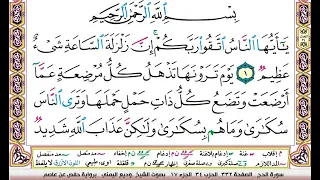 بِسْمِ اللَّهِ الرَّحْمَٰنِ الرَّحِيمِ
يَا أَيُّهَا النَّاسُ اتَّقُوا رَبَّكُمْ إِنَّ زَلْزَلَةَ السَّاعَةِ شَيْءٌ
عَظِيمٌ ١ يَوْمَ تَرَوْنَهَا تَذْهَلُ كُلُّ مُرْضِعَةٍ عَمَّا
أَرْضَعَتْ وَتَضَعُ كُلُّ ذَاتِ حَمْلٍ حَمْلَهَا وَتَرَى النَّاسَ
سُكَارَىٰ وَمَا هُم بِسُكَارَىٰ وَلَٰكِنَّ عَذَابَ اللَّهِ شَدِيدٌ
سورة الحج الصفحة ٣٣٢ الحزب ٣٤ الجزء ١٧ بصوت الشيخ وديع اليمني برواية حفص عن عاصم